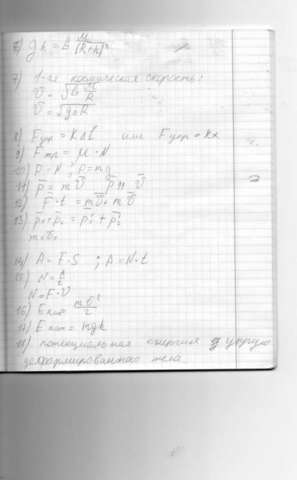 6) gh = G M/(R+h)²
7) 1-ая космическая скорость:
v = √G M/R
v = √g₀R
8) Fупр = kΔl или Fупр = kx
9) Fтр = μ · N
10) P = N ; P = mg
11) p̅ = m v̅ p̅ ↑↑ v̅
12) F · t = m v̅ - m v̅₀
13) p̅₁ + p̅₂ = p̅₁' + p̅₂'
m₁v₁
14) A = F · S ; A = N · t
15) N = A/t
N = F · v
16) Eкин = mv²/2
17) Eпот = mgh
18) потенциальная энергия упруго
деформированного тела